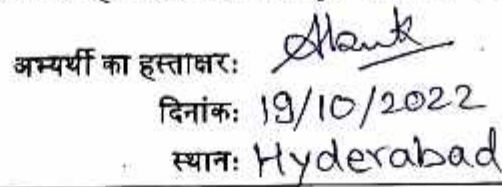 अभ्यर्थी का हस्ताक्षरः
दिनांकः 19/10/2022
स्थानः Hyderabad